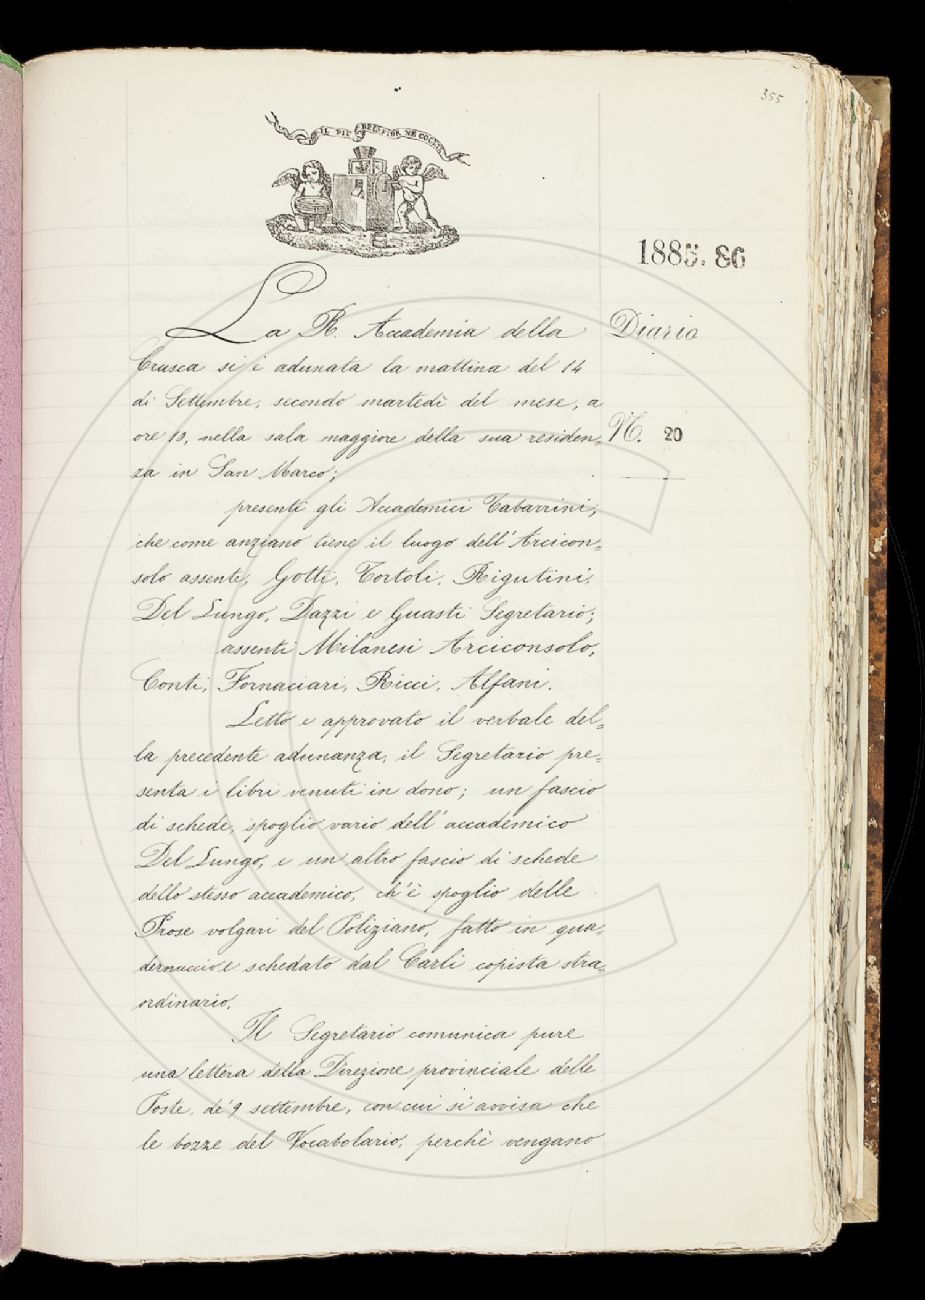 355
IL PIÙ BEL FIOR NE COGLIE
1885. 86
La R. Accademia della
Diario
Crusca si è adunata la mattina del 14
di Settembre, secondo martedì del mese, a
ore 10, nella sala maggiore della sua residen=
N. 20
za in San Marco;
presenti gli Accademici Tabarrini,
che come anziano tiene il luogo dell'Arcicon=
solo assente, Gotti, Tortoli, Rigutini,
Del Lungo, Dazzi e Guasti Segretario;
assenti Milanesi Arciconsolo,
Conti, Fornaciari, Ricci, Alfani.
Letto e approvato il verbale del=
la precedente adunanza, il Segretario pre=
senta i libri venuti in dono; un fascio
di schede, spoglio vario dell'accademico
Del Lungo, e un altro fascio di schede
dello stesso accademico, ch'è spoglio delle
Prose volgari del Poliziano, fatto in qua=
dernuccio e schedato dal Carli copista stra=
ordinario.
Il Segretario comunica pure
una lettera della Direzione provinciale delle
Poste, de' 9 settembre, con cui si avvisa che
le bozze del Vocabolario, perchè vengano